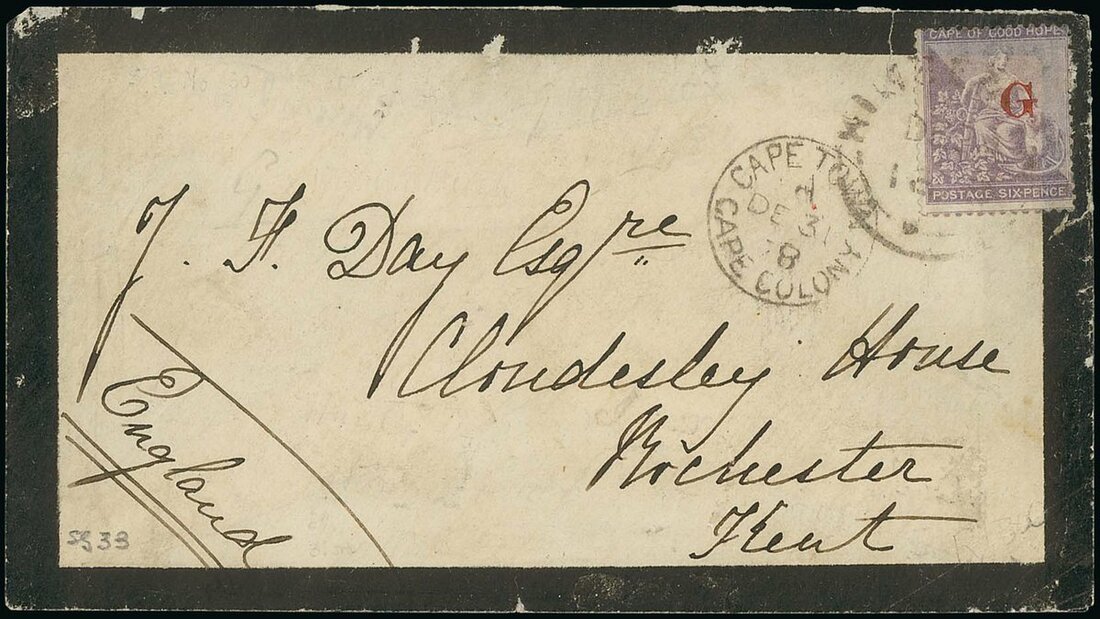 CAPE OF GOOD HOPE
G
POSTAGE SIX-PENCE
CAPE TOWN
DE 31
78
CAPE COLONY
J. F. Day Esqre
Cloudesley House
Rochester
Kent
England
SG 33